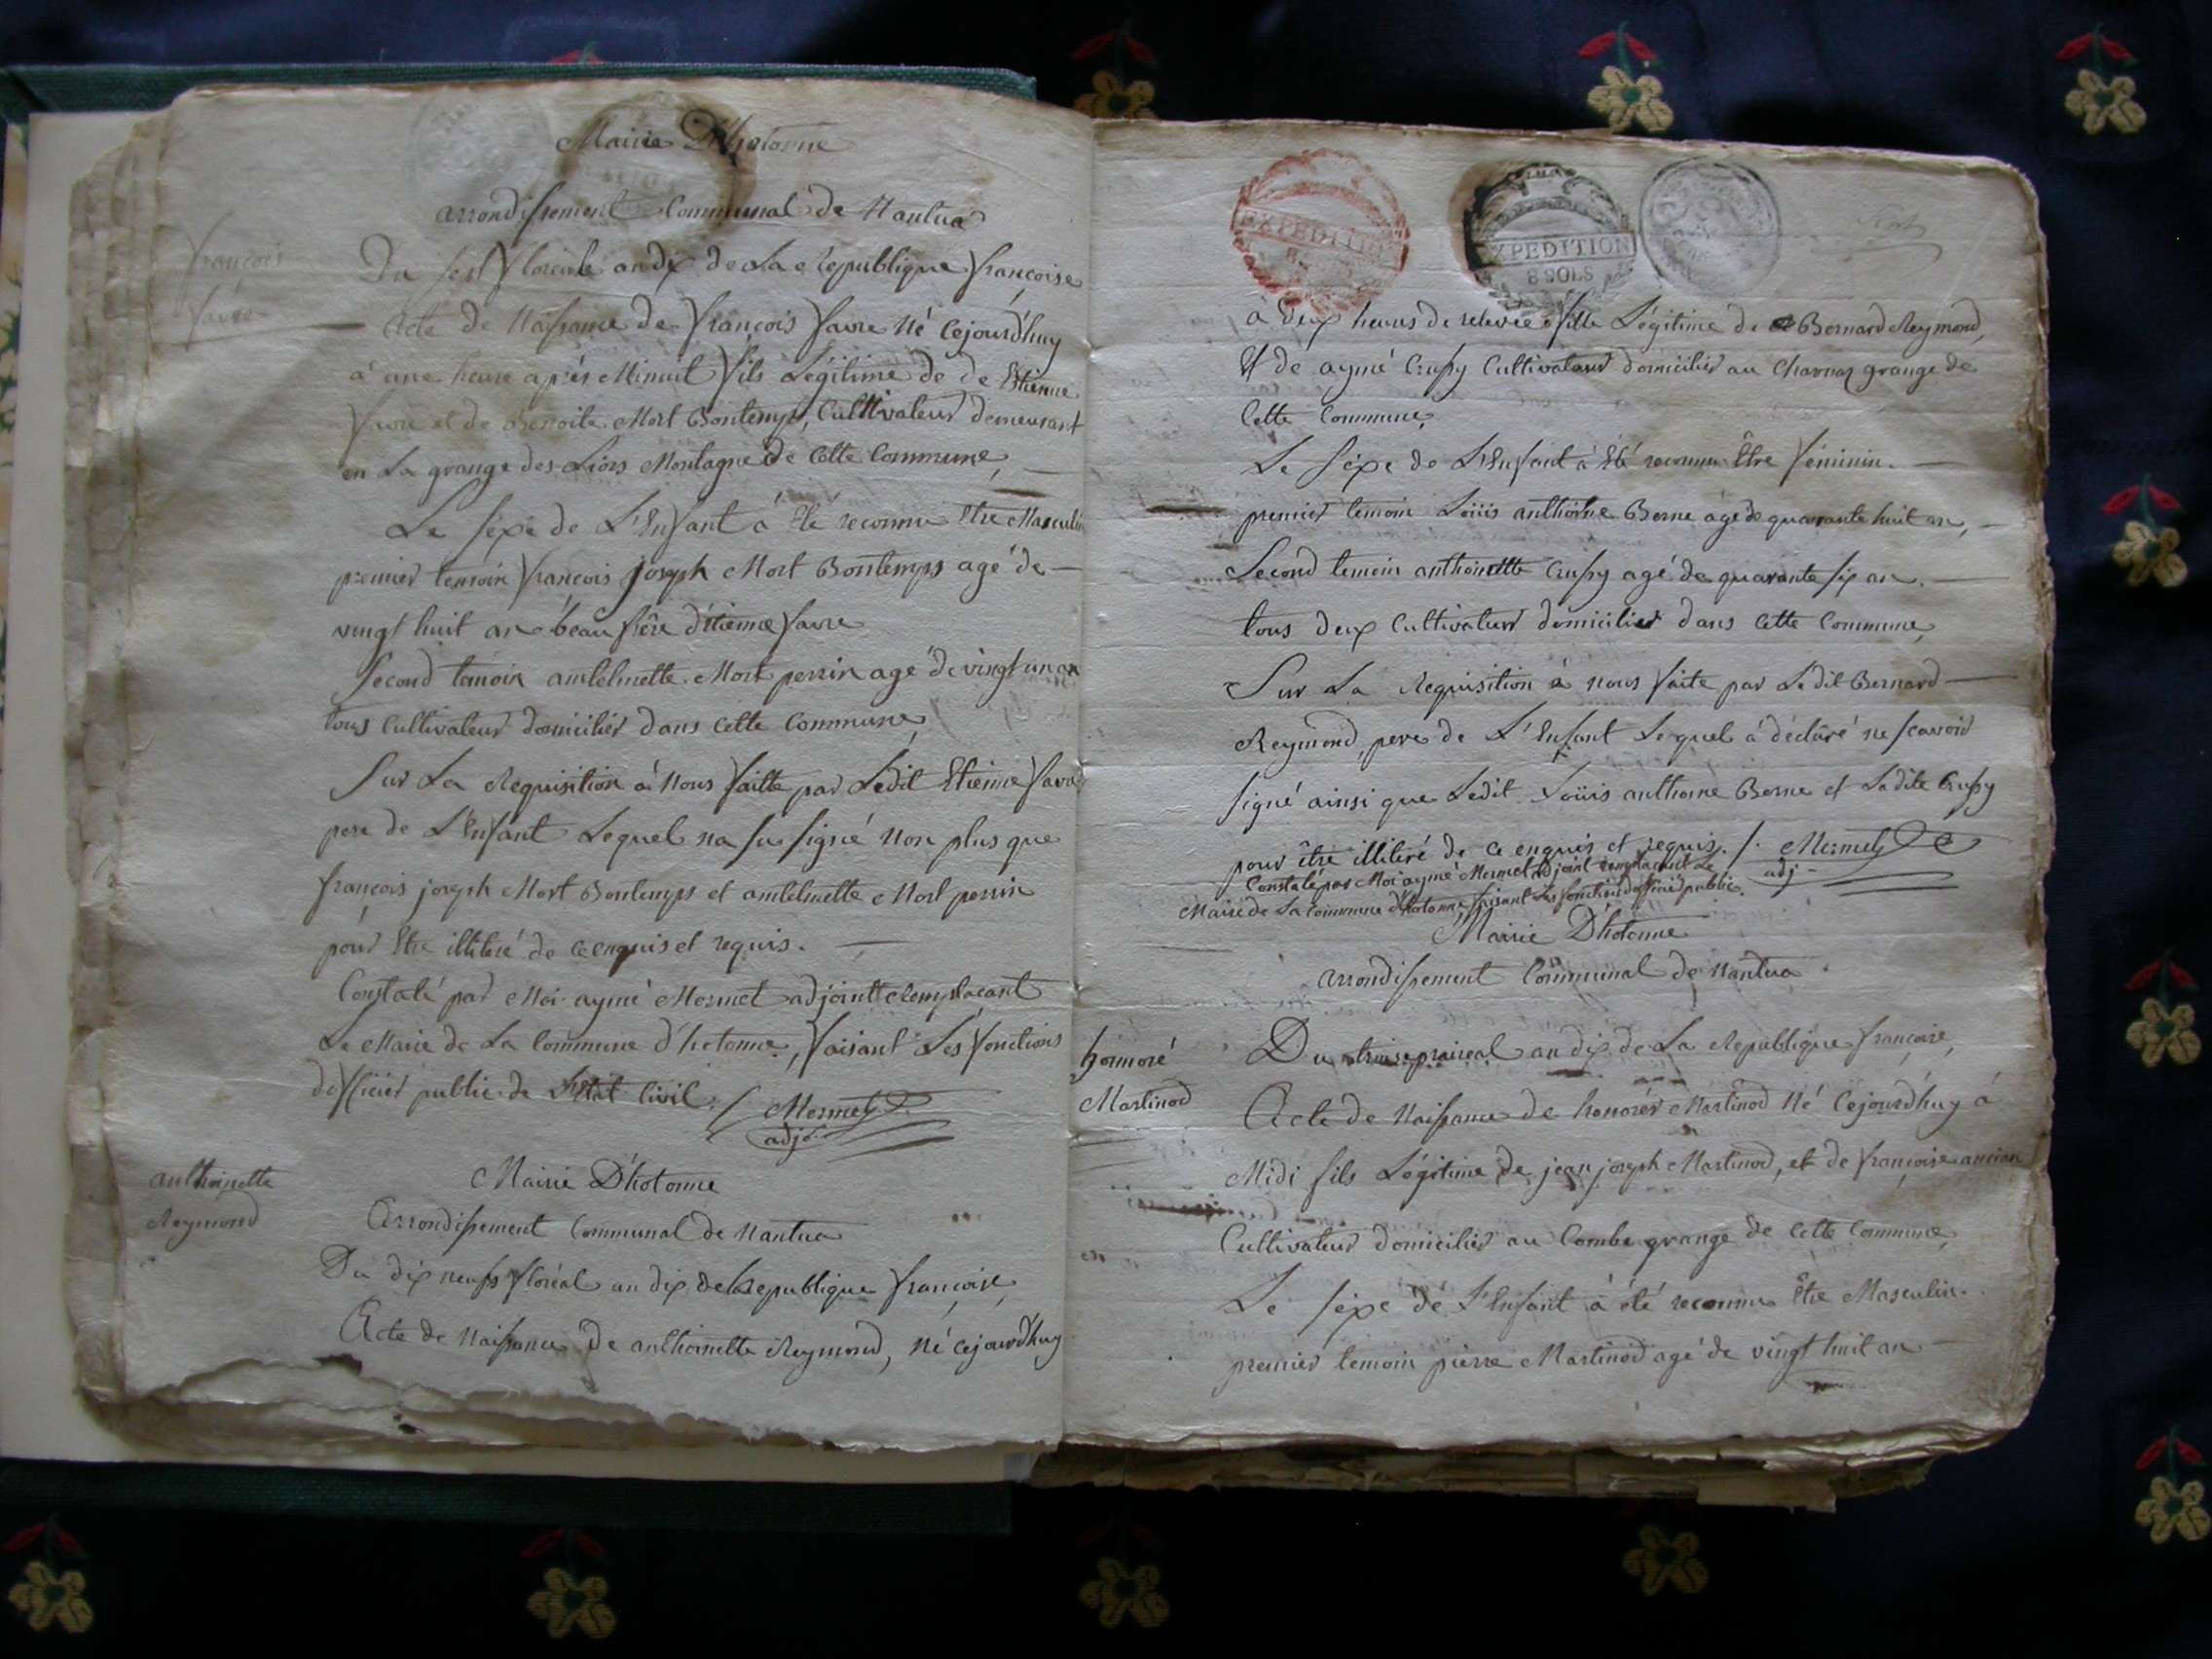 Mairie D'hotonne
arrondissement Communal de Nantua
françois
favre
Du sept floréale an dix de La Republique françoise
Acte de Naissance de françois favre Né Cejourd'huy
à une heure après Minuit fils Légitime de de Etienne
favre et de Benoite Mort Bontemps, Cultivateur demeurant
en La grange des Liors Montagne de Cette Commune,
Le Sexe de L'Enfant à été reconnu Etre Masculin
premier temoin françois joseph Mort Bontemps agé de
vingt huit an beau frère d'étienne favre
Second temoin anthelmette Mort perrin agé de vingt un an
tous cultivateur domiciliés dans cette Commune,
Sur La Requisition à Nous faitte par Ledit Etienne favre
pere de L'Enfant Lequel na su signé Non plus que
françois joseph Mort Bontemps et anthelmette Mort perrin
pour Etre illiteré de ce enquis et requis.
Constaté par Moi aymé Mermet adjoint remplacant
Le Maire de La Commune d'hotonne, faisant Les fonctions
dofficier public de L'Etat Civil. / Mermet
adjt
anthoinette
Reymond
Mairie D'hotonne
Arrondissement Communal de Nantua
Du dix neufs floréal an dix de La republique françoise,
Acte de Naissance de anthoinette Reymond, Né cejourd'huy
EXPEDITION
EXPEDITION
8 SOLS
à deux heures de relevée fille Légitime de Bernard Reymond,
Et de aymé Crussy Cultivateurs domiciliés au Charnay grange de
Cette Commune,
Le Sexe de L'Enfant à Eté reconnu Etre féminin.
premier temoin Loüis anthoine Berne âgé de quarante huit an,
Second temoin anthoinette Crussy agé de quarante six an.
tous deux Cultivateurs domiciliés dans Cette Commune,
Sur La Requisition à nous faite par Ledit Bernard
Reymond, pere de L'Enfant Lequel à déclaré ne scavoir
signé ainsi que Ledit Loüis anthoine Berne et Ladite Crussy
pour être illiteré de ce enquis et requis. /. Mermet
adj
Constaté par Moi aymé Mermet adjoint remplacant Le
Maire de La Commune d'hotonne, faisant Les fonctions d'officier public.
Mairie D'hotonne
arrondissement Communal de Nantua
honnoré
Martinod
Du treise praireal an dix de La Republique françoise,
Acte de Naissance de honorér Martinod Né Cejourd'huy à
Midi fils Légitime de jean joseph Martinod, et de françoise ancian
Cultivateurs domiciliés au Combe grange de Cette Commune,
Le Sexe de L'Enfant à été reconnu Etre Masculin.
premier temoin pierre Martinod agé de vingt huit an